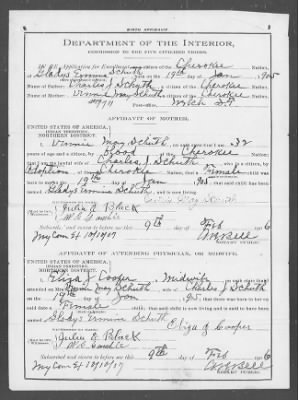 BIRTH AFFIDAVIT.
DEPARTMENT OF THE INTERIOR,
COMMISSION TO THE FIVE CIVILIZED TRIBES.
IN RE Application for Enrollment, as a citizen of the Cherokee Nation,
of Gladys Ermine Schuth, born on the 19th day of Jan, 1905
Name of Father: Charles J Schuth a citizen of the Cherokee Nation.
Name of Mother: Vinnie May Schuth a citizen of the Cherokee Nation.
Post-office, Welch I.T.
AFFIDAVIT OF MOTHER.
UNITED STATES OF AMERICA,
INDIAN TERRITORY,
NORTHERN DISTRICT.
I, Vinnie May Schuth, on oath state that I am 32
years of age and a citizen, by Blood, of the Cherokee Nation;
that I am the lawful wife of Charles J Schuth, who is a citizen, by
Adoption of the Cherokee Nation; that a Female child was
born to me on 19th day of Jan, 1905, that said child has been
named Gladys Ermine Schuth, and is now living.
May Schuth
Julia A Black
W.C. Gamble
Subscribed and sworn to before me this 9th day of Feb 1906
My Com Ex 10/10/07
NOTARY PUBLIC.
AFFIDAVIT OF ATTENDING PHYSICIAN, OR MIDWIFE.
UNITED STATES OF AMERICA,
INDIAN TERRITORY,
NORTHERN DISTRICT.
I, Eliza J Cooper, a Midwife, on oath state that I
attended on Mrs. May Schuth, wife of Charles J Schuth
on the 19th day of Jan, 1905, that there was born to her on said date a
Female child; that said child is now living and is said to have been
named Gladys Ermine Schuth
Eliza J Cooper
Julia A Black
W.C. Gamble
Subscribed and sworn to before me this 9th day of Feb 1906
My Com Ex 10/10/07
NOTARY PUBLIC.